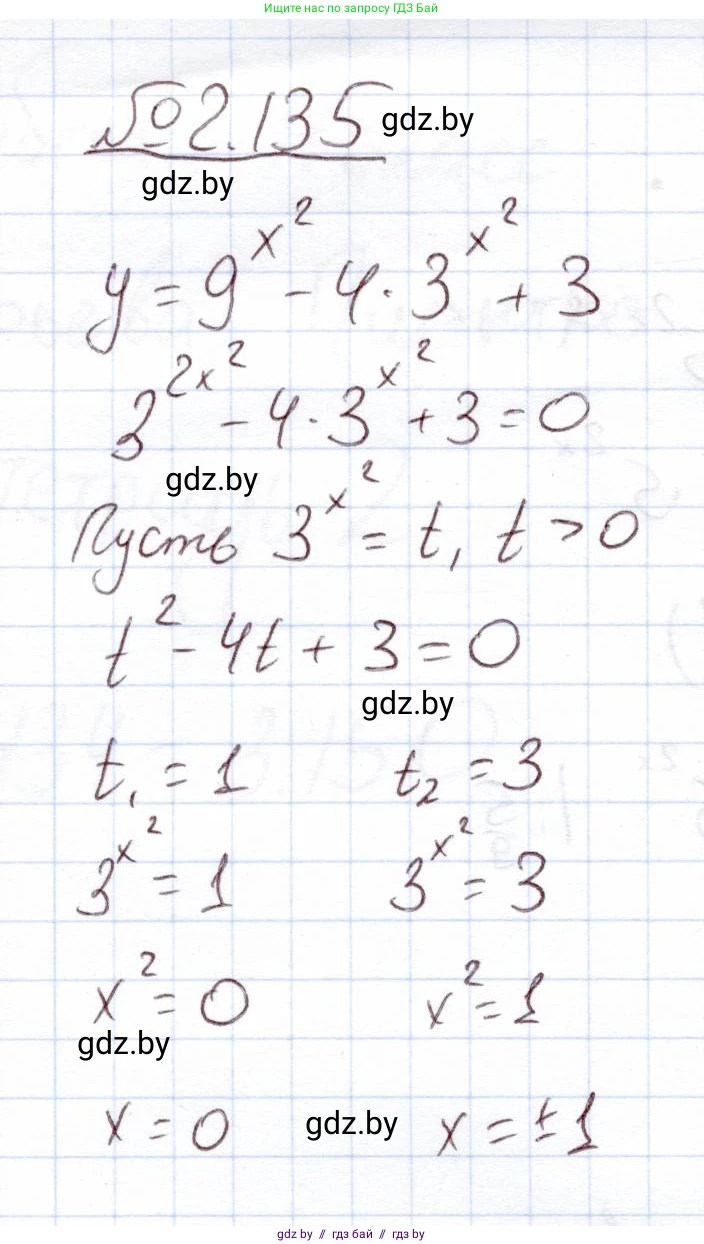 Ищите нас по запросу ГДЗ Бай
№2.135 gdz.by
gdz.by
y = 9^{x^2} - 4 · 3^{x^2} + 3
3^{2x^2} - 4 · 3^{x^2} + 3 = 0
gdz.by
Пусть 3^{x^2} = t, t > 0
t^2 - 4t + 3 = 0
gdz.by
t_1 = 1 t_2 = 3
3^{x^2} = 1 3^{x^2} = 3
x^2 = 0 x^2 = 1
gdz.by
x = 0 gdz.by x = ±1
gdz by // гдз бай // gdz by